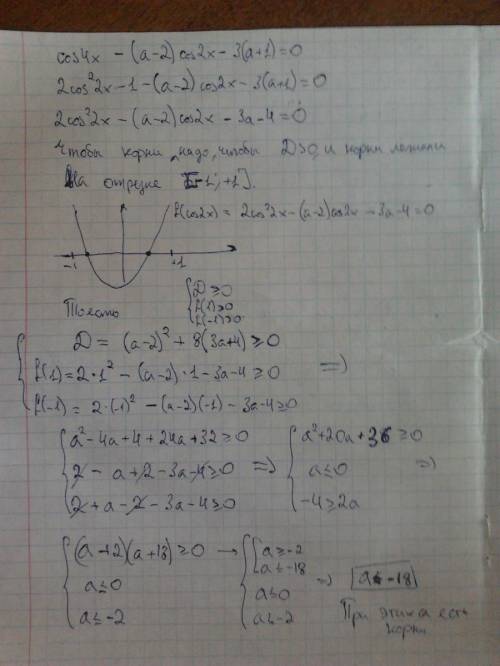 cos4x - (a-2)cos2x - 3(a+1)=0
2cos²2x-1-(a-2)cos2x-3(a+1)=0
2cos²2x-(a-2)cos2x-3a-4=0
Чтобы корни, надо, чтобы D≥0, и корни лежали
На отрезке [-1; +1].
f(cos2x) = 2cos²2x-(a-2)cos2x-3a-4=0
-1 +1
D≥0
f(1)≥0
f(-1)≥0
D = (a-2)² + 8(3a+4) ≥0
f(1)=2·1² - (a-2)·1-3a-4≥0 =>
f(-1) = 2·(-1)² - (a-2)(-1) - 3a-4≥0
a²-4a+4+24a+32≥0 => a²+20a+36≥0
2-a+2-3a-4≥0 a≤0 =>
2+a-2-3a-4≥0 -4≥2a
(a+2)(a+18)≥0 → a≥-2
a≤-18
a≤0 a≤0 => a≤-18
a≤-2 a≤-2
При этих a есть
корни